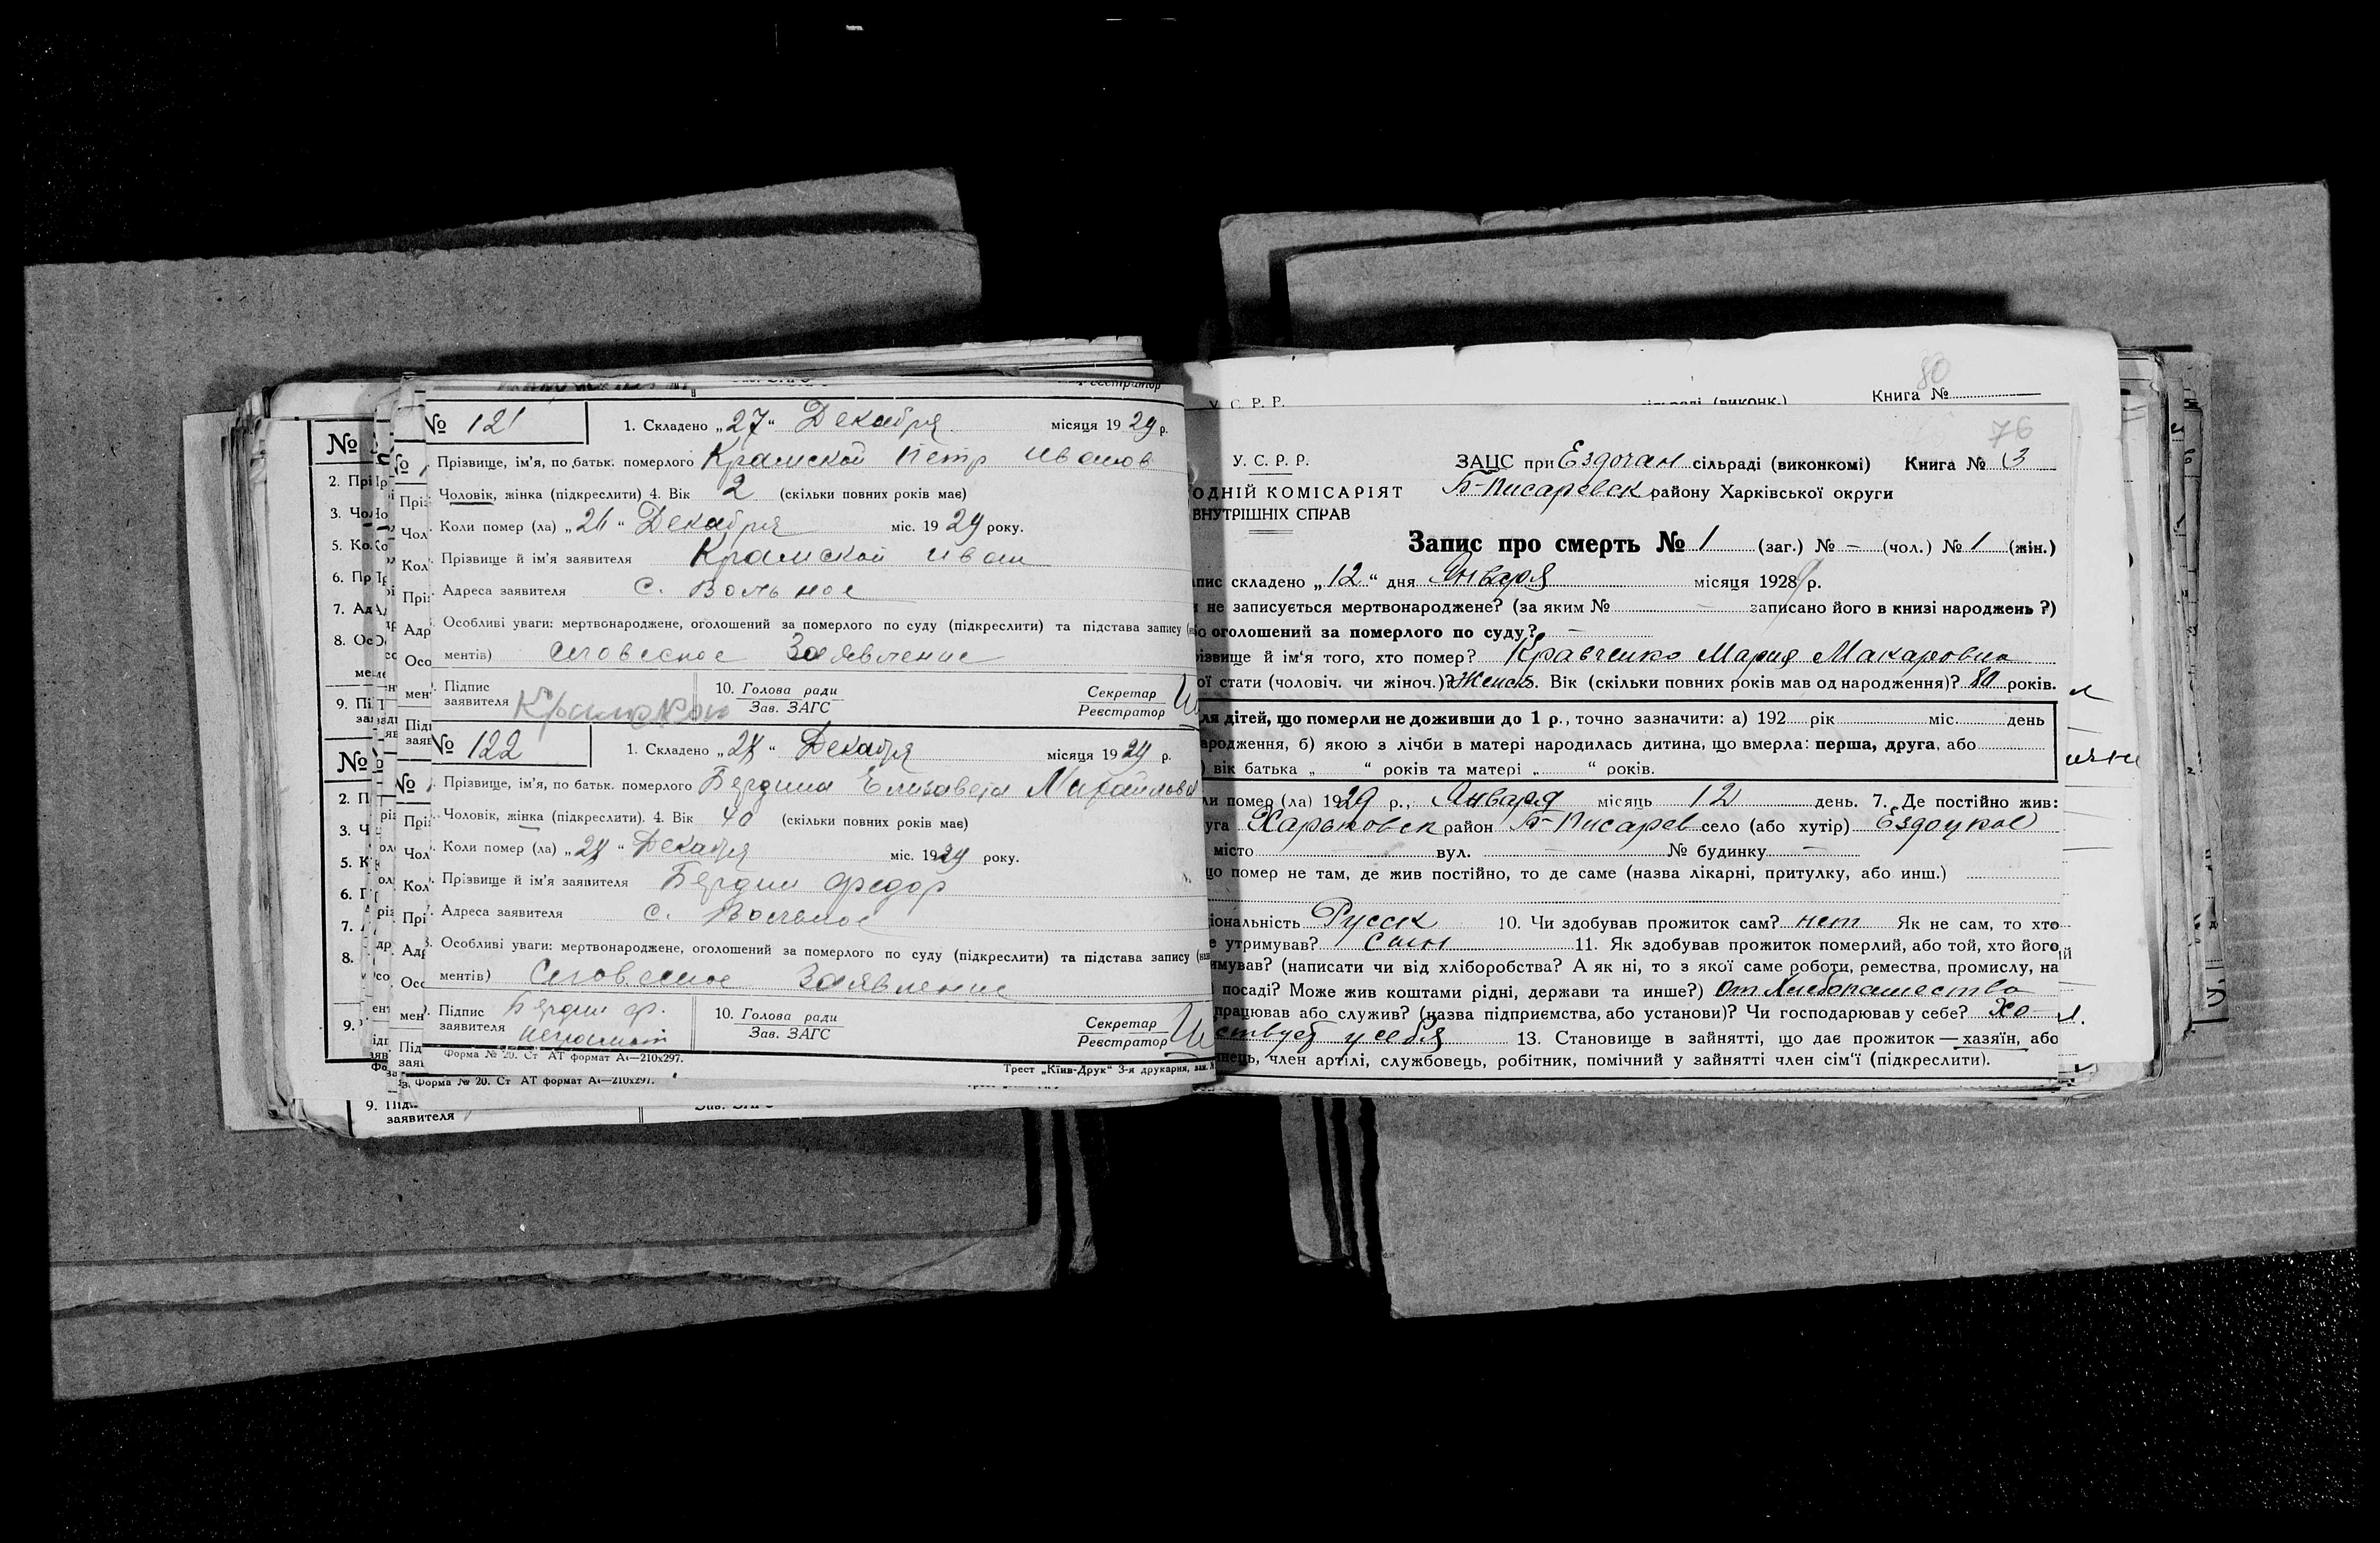 № 121
1. Складено „27“ Декабря місяця 1929 р.
Прізвище, ім'я, по батьк. померлого Крамской Петр Иванов
Чоловік, жінка (підкреслити) 4. Вік 2 (скільки повних років має)
Коли помер (ла) „26“ Декабря міс. 1929 року.
Прізвище й ім'я заявителя Крамской Иван
Адреса заявителя с. Вольное
Особливі уваги: мертвонароджене, оголошений за померлого по суду (підкреслити) та підстава запису
ментів) словесное Заявление
Підпис заявителя
10. Голова ради
Зав. ЗАГС
Секретар
Реєстратор
№ 122
1. Складено „28“ Декабря місяця 1929 р.
Прізвище, ім'я, по батьк. померлого Бердина Елизавета Михайловна
Чоловік, жінка (підкреслити). 4. Вік 40 (скільки повних років має)
Коли помер (ла) „28“ Декабря міс. 1929 року.
Прізвище й ім'я заявителя Бердин Федор
Адреса заявителя с. Вольное
8. Особливі уваги: мертвонароджене, оголошений за померлого по суду (підкреслити) та підстава запису
ментів) Словесное Заявление
Підпис заявителя Бердин Ф.
неграмот
10. Голова ради
Зав. ЗАГС
Секретар
Реєстратор
Форма № 20. Ст АТ формат А4—210х297.
Трест „Київ-Друк“ 3-я друкарня, зам.
Форма № 20. Ст АТ формат А4—210х297.
9. Підп.
заявителя
80
У. С. Р. Р.
Книга №
76
У. С. Р. Р.
ЗАЦС при Ездочан сільраді (виконкомі) Книга № 3
ОДНІЙ КОМІСАРІЯТ
Б-Писаревск району Харківської округи
ВНУТРІШНІХ СПРАВ
Запис про смерть № 1 (заг.) № – (чол.) № 1 (жін.)
пис складено „12“ дня Января місяця 1929 р.
не записується мертвонароджене? (за яким № – записано його в книзі народжень?)
оголошений за померлого по суду? –
ізвище й ім'я того, хто помер? Кравченко Мария Макаровна
ої стати (чоловіч. чи жіноч.)? Женск. Вік (скільки повних років мав од народження)? 80 років.
ля дітей, що померли не доживши до 1 р., точно зазначити: а) 192 рік міс. день
ародження, б) якою з лічби в матері народилась дитина, що вмерла: перша, друга, або
) вік батька „ “ років та матері „ “ років.
ли помер (ла) 1929 р., Января місяць 12 день. 7. Де постійно жив:
уга Харьковск район Б-Писарев село (або хутір) Ездоцкое
місто – вул. – № будинку –
що помер не там, де жив постійно, то де саме (назва лікарні, притулку, або инш.)
ціональність Русск 10. Чи здобував прожиток сам? нет Як не сам, то хто
утримував? Сын 11. Як здобував прожиток померлий, або той, хто його
имував? (написати чи від хліборобства? А як ні, то з якої саме роботи, ремества, промислу, на
посаді? Може жив коштами рідні, держави та инше?) От Хлебопашества
працював або служив? (назва підприємства, або установи)? Чи господарював у себе? Хо–
ствует у себя 13. Становище в зайнятті, що дає прожиток — хазяїн, або
нець, член артілі, службовець, робітник, помічний у зайнятті член сім'ї (підкреслити).